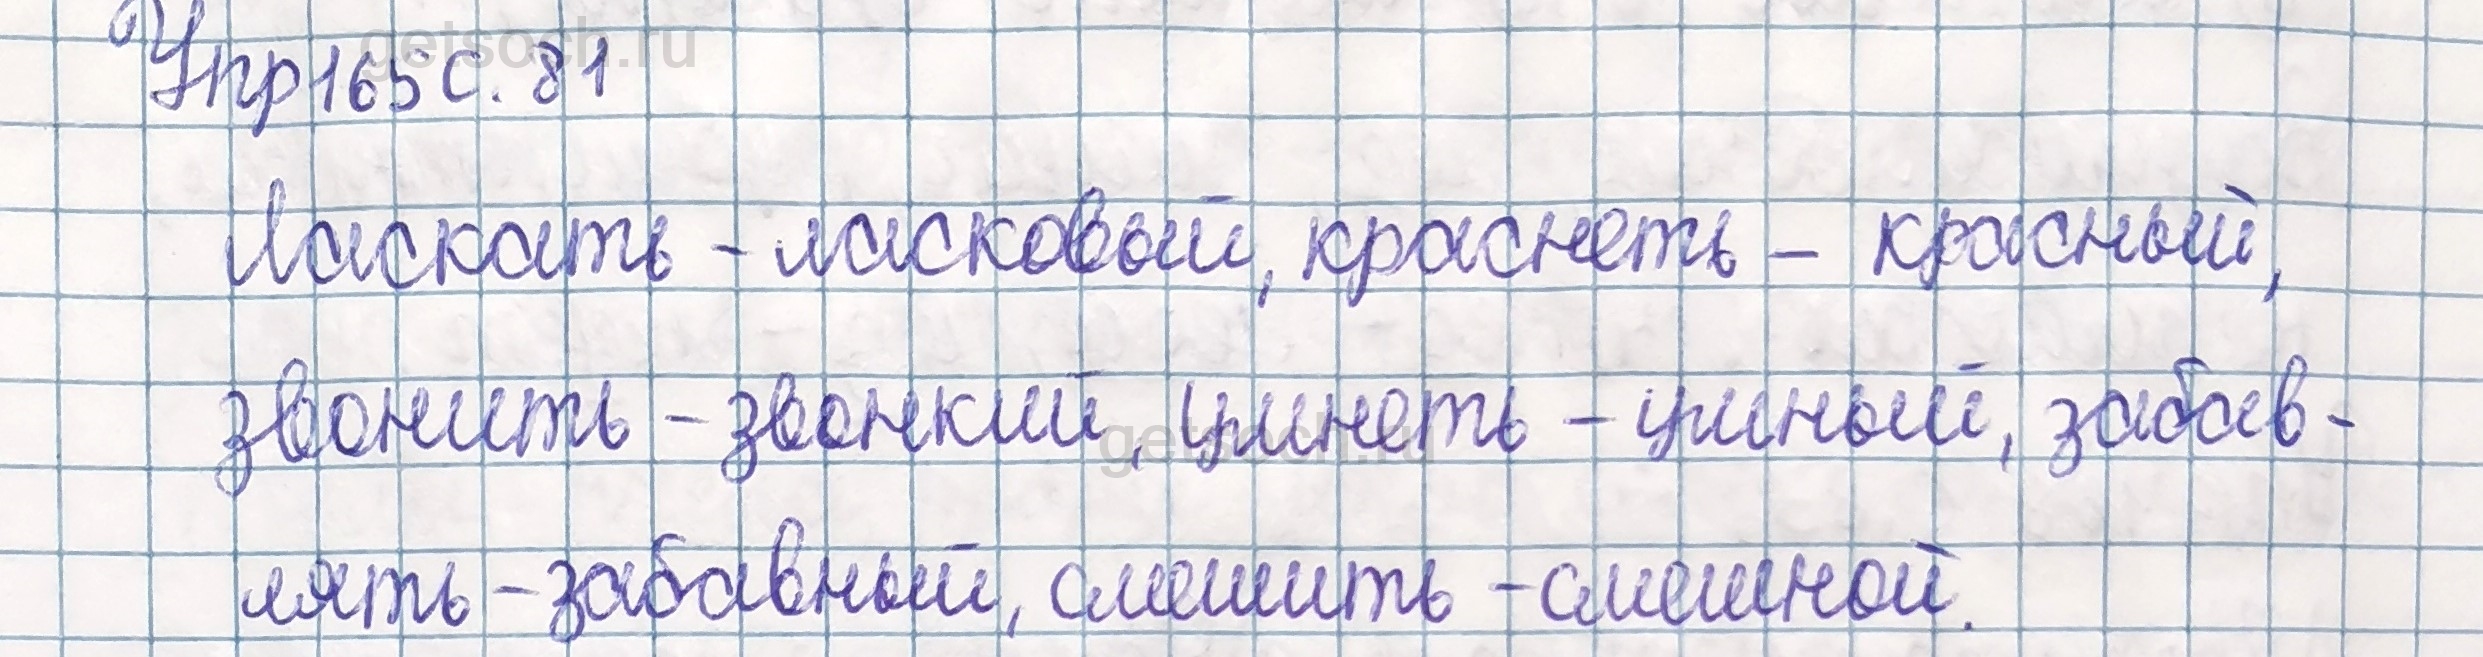 Упр 165 С. 81
getsoch.ru
Ласкать - ласковый, краснеть - красный,
звонить - звонкий, умнеть - умный, забав-
getsoch.ru
лять - забавный, смешить - смешной.